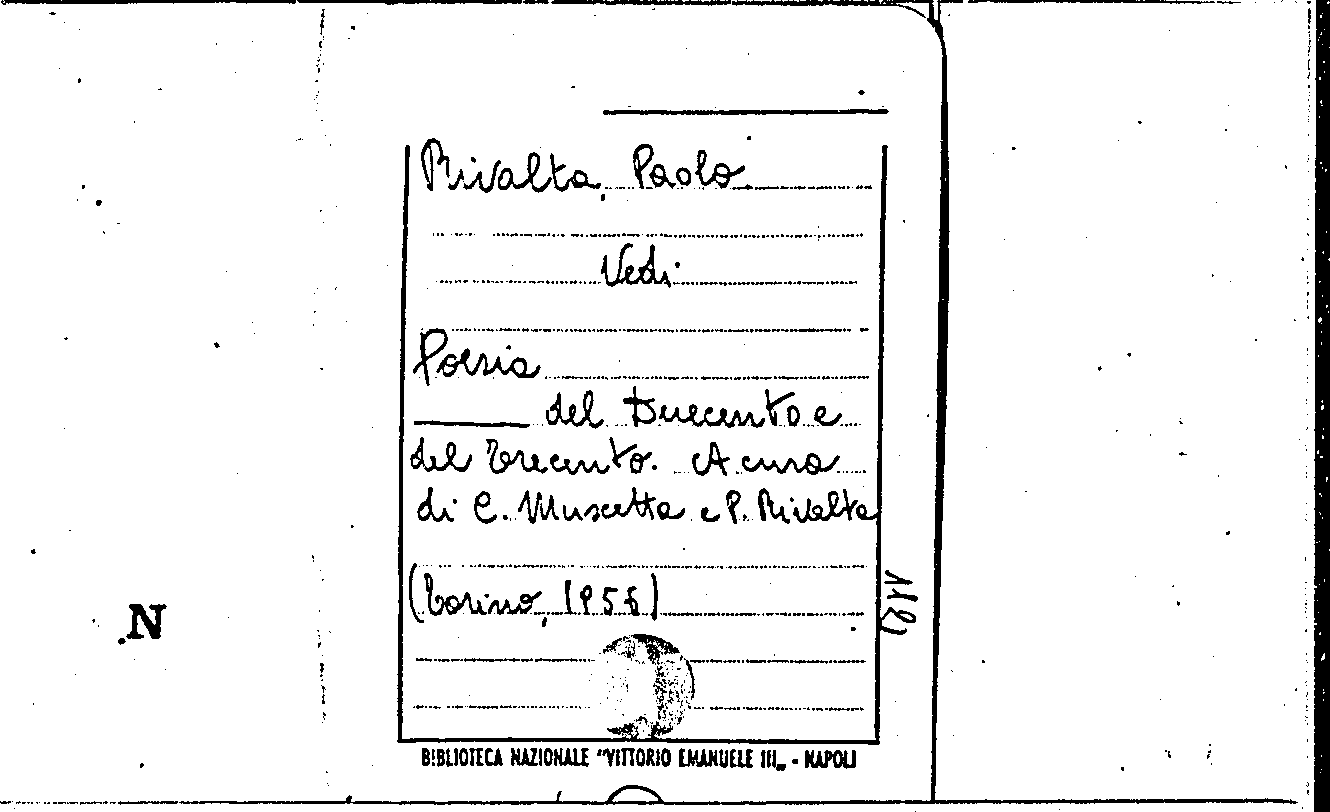 Rivalta, Paolo
Vedi
Poesia
del Duecento e
del Trecento. A cura
di C. Muscetta e P. Rivalta
(Torino, 1956)
N
BIBLIOTECA NAZIONALE "VITTORIO EMANUELE III„ - NAPOLI